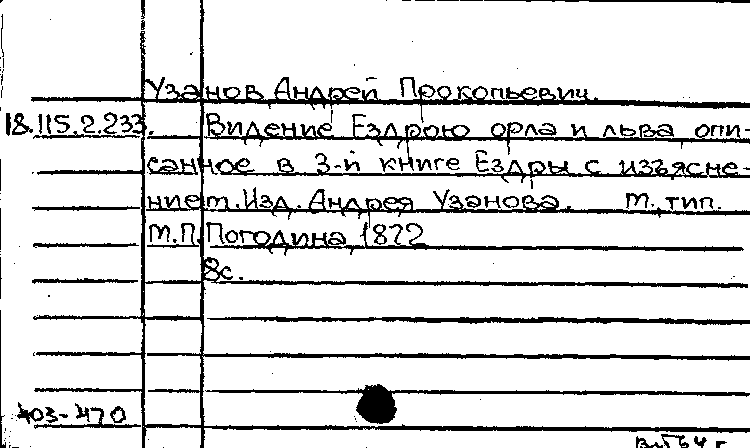 Узанов, Андрей Прокопьевич.
18.115.2.233. Видение Ездрою орла и льва, опи-
санное в 3-й книге Ездры с изъясне-
нием. Изд. Андрея Узанова. М., тип.
М.П. Погодина, 1872
8с.
403-470